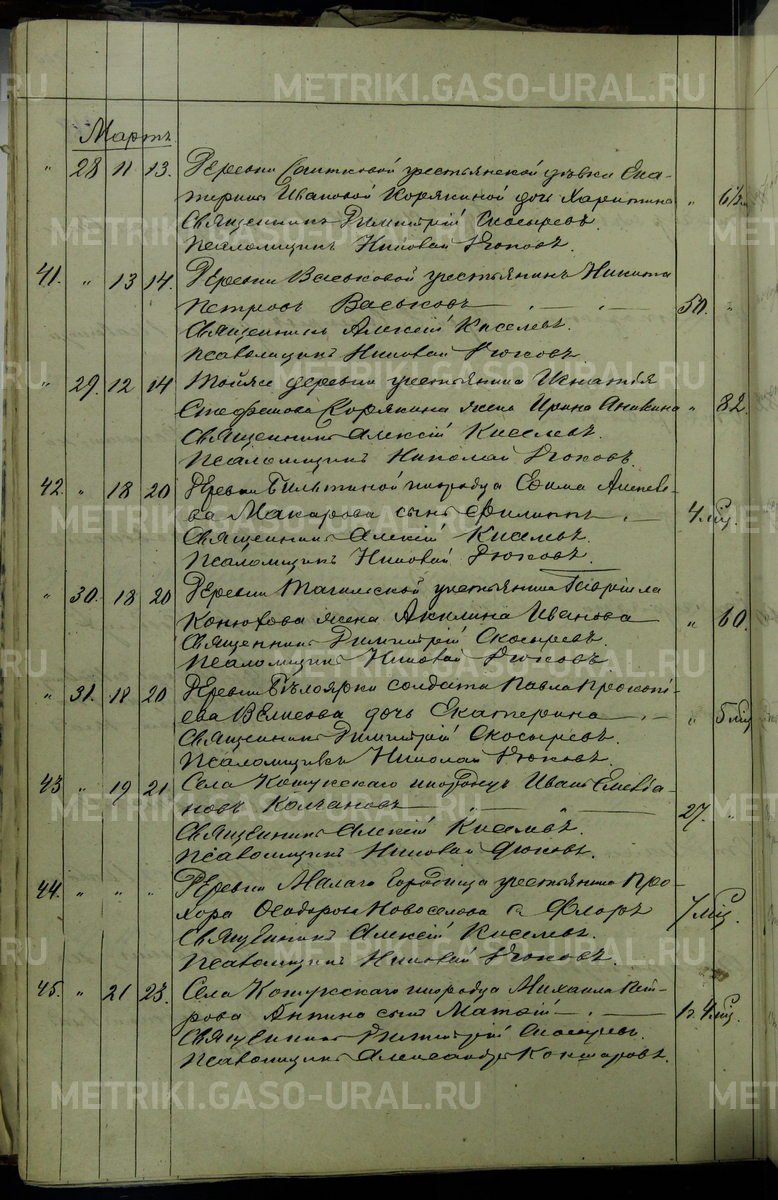 METRIKI.GASO-URAL.RU
Мартъ
" 28 11 13. Деревни Саитковой крестьянской дѣвки Ека-
терины Ивановой Корякиной дочь Харитина " 6½
Священникъ Димитрій Скосыревъ.
Псаломщикъ Николай Дюковъ.
41. " 13 14. Деревни Васьковой крестьянинъ Никита
Петровъ Васьковъ 50. "
Священникъ Алексій Киселевъ.
Псаломщикъ Николай Дюковъ.
" 29. 12 14 Тойже деревни крестьянина Игнатія
Стефанова Корякина жена Ирина Аникина " 82.
Священникъ Алексій Киселевъ.
Псаломщикъ Николай Дюковъ
42. " 18 20 Деревни инородца Ефима Алексѣе-
ва Макарова сынъ Филиппъ 4 мѣс.
Священникъ Алексій Киселевъ.
Псаломщикъ Николай Дюковъ.
" 30. 18 20 Деревни Тагильской крестьянина Гавріила
Конюхова жена Акилина Иванова " 60.
Священникъ Димитрій Скосыревъ.
Псаломщикъ Николай Дюковъ.
" 31. 18 20 Деревни Бѣлоярки солдата Павла Прокопі-
ева дочь Екатерина " 5 мѣс
Священникъ Димитрій Скосыревъ.
Псаломщикъ Николай Дюковъ.
43 " 19 21 Села инородецъ Иванъ Емелья-
новъ Колчановъ 27. "
Священникъ Алексій Киселевъ.
Псаломщикъ Николай Дюковъ.
44. " " " Деревни Малаго Городища крестьянина Про-
хора Ѳеодорова Новоселова с. Флоръ 7 мѣс.
Священникъ Алексій Киселевъ.
Псаломщикъ Николай Дюковъ.
45. " 21 23. Села инородца Михаила Пет-
рова сынъ Матѳій 1 г. 4 мѣс.
Священникъ Димитрій Скосыревъ.
Псаломщикъ Александръ Кокшаровъ.
METRIKI.GASO-URAL.RU